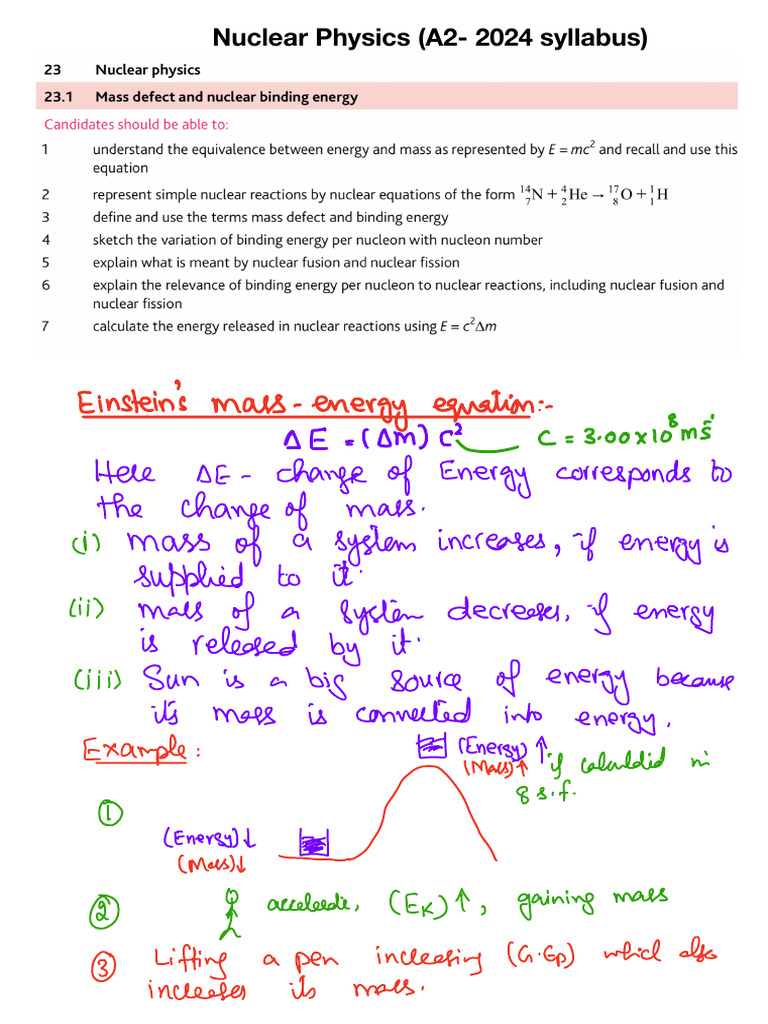 Nuclear Physics (A2- 2024 syllabus)
23 Nuclear physics
23.1 Mass defect and nuclear binding energy
Candidates should be able to:
1 understand the equivalence between energy and mass as represented by E = mc² and recall and use this
equation
2 represent simple nuclear reactions by nuclear equations of the form ¹⁴₇N + ⁴₂He → ¹⁷₈O + ¹₁H
3 define and use the terms mass defect and binding energy
4 sketch the variation of binding energy per nucleon with nucleon number
5 explain what is meant by nuclear fusion and nuclear fission
6 explain the relevance of binding energy per nucleon to nuclear reactions, including nuclear fusion and
nuclear fission
7 calculate the energy released in nuclear reactions using E = c²Δm
Einstein's mass-energy equation:-
ΔE = (Δm) c² c = 3.00x10⁸ ms⁻¹
Here ΔE - change of Energy corresponds to
the change of mass.
(i) mass of a system increases, if energy is
supplied to it.
(ii) mass of a system decreases, if energy
is released by it.
(iii) Sun is a big source of energy because
it's mass is connected into energy.
Example: (Energy)↑
(Mass)↑ if calculated in
8 s.f.
①
(Energy)↓
(Mass)↓
② accelerate, (EK)↑, gaining mass
③ Lifting a pen increasing (G.Ep) which also
increases its mass.